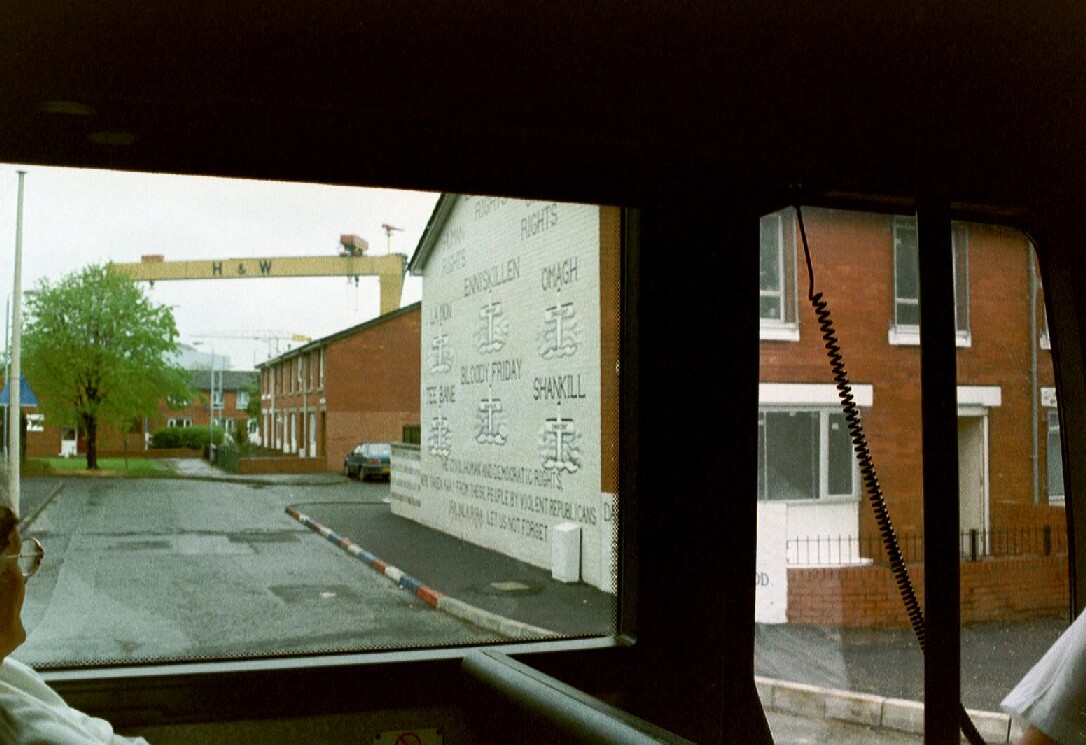 H & W
RIGHTS
RIGHTS
HUMAN
RIGHTS
ENNISKILLEN
OMAGH
LA MON
BLOODY FRIDAY
TEE BANE
SHANKILL
THE CIVIL, HUMAN AND DEMOCRATIC RIGHTS
WERE TAKEN AWAY FROM THESE PEOPLE BY VIOLENT REPUBLICANS
LET US NOT FORGET